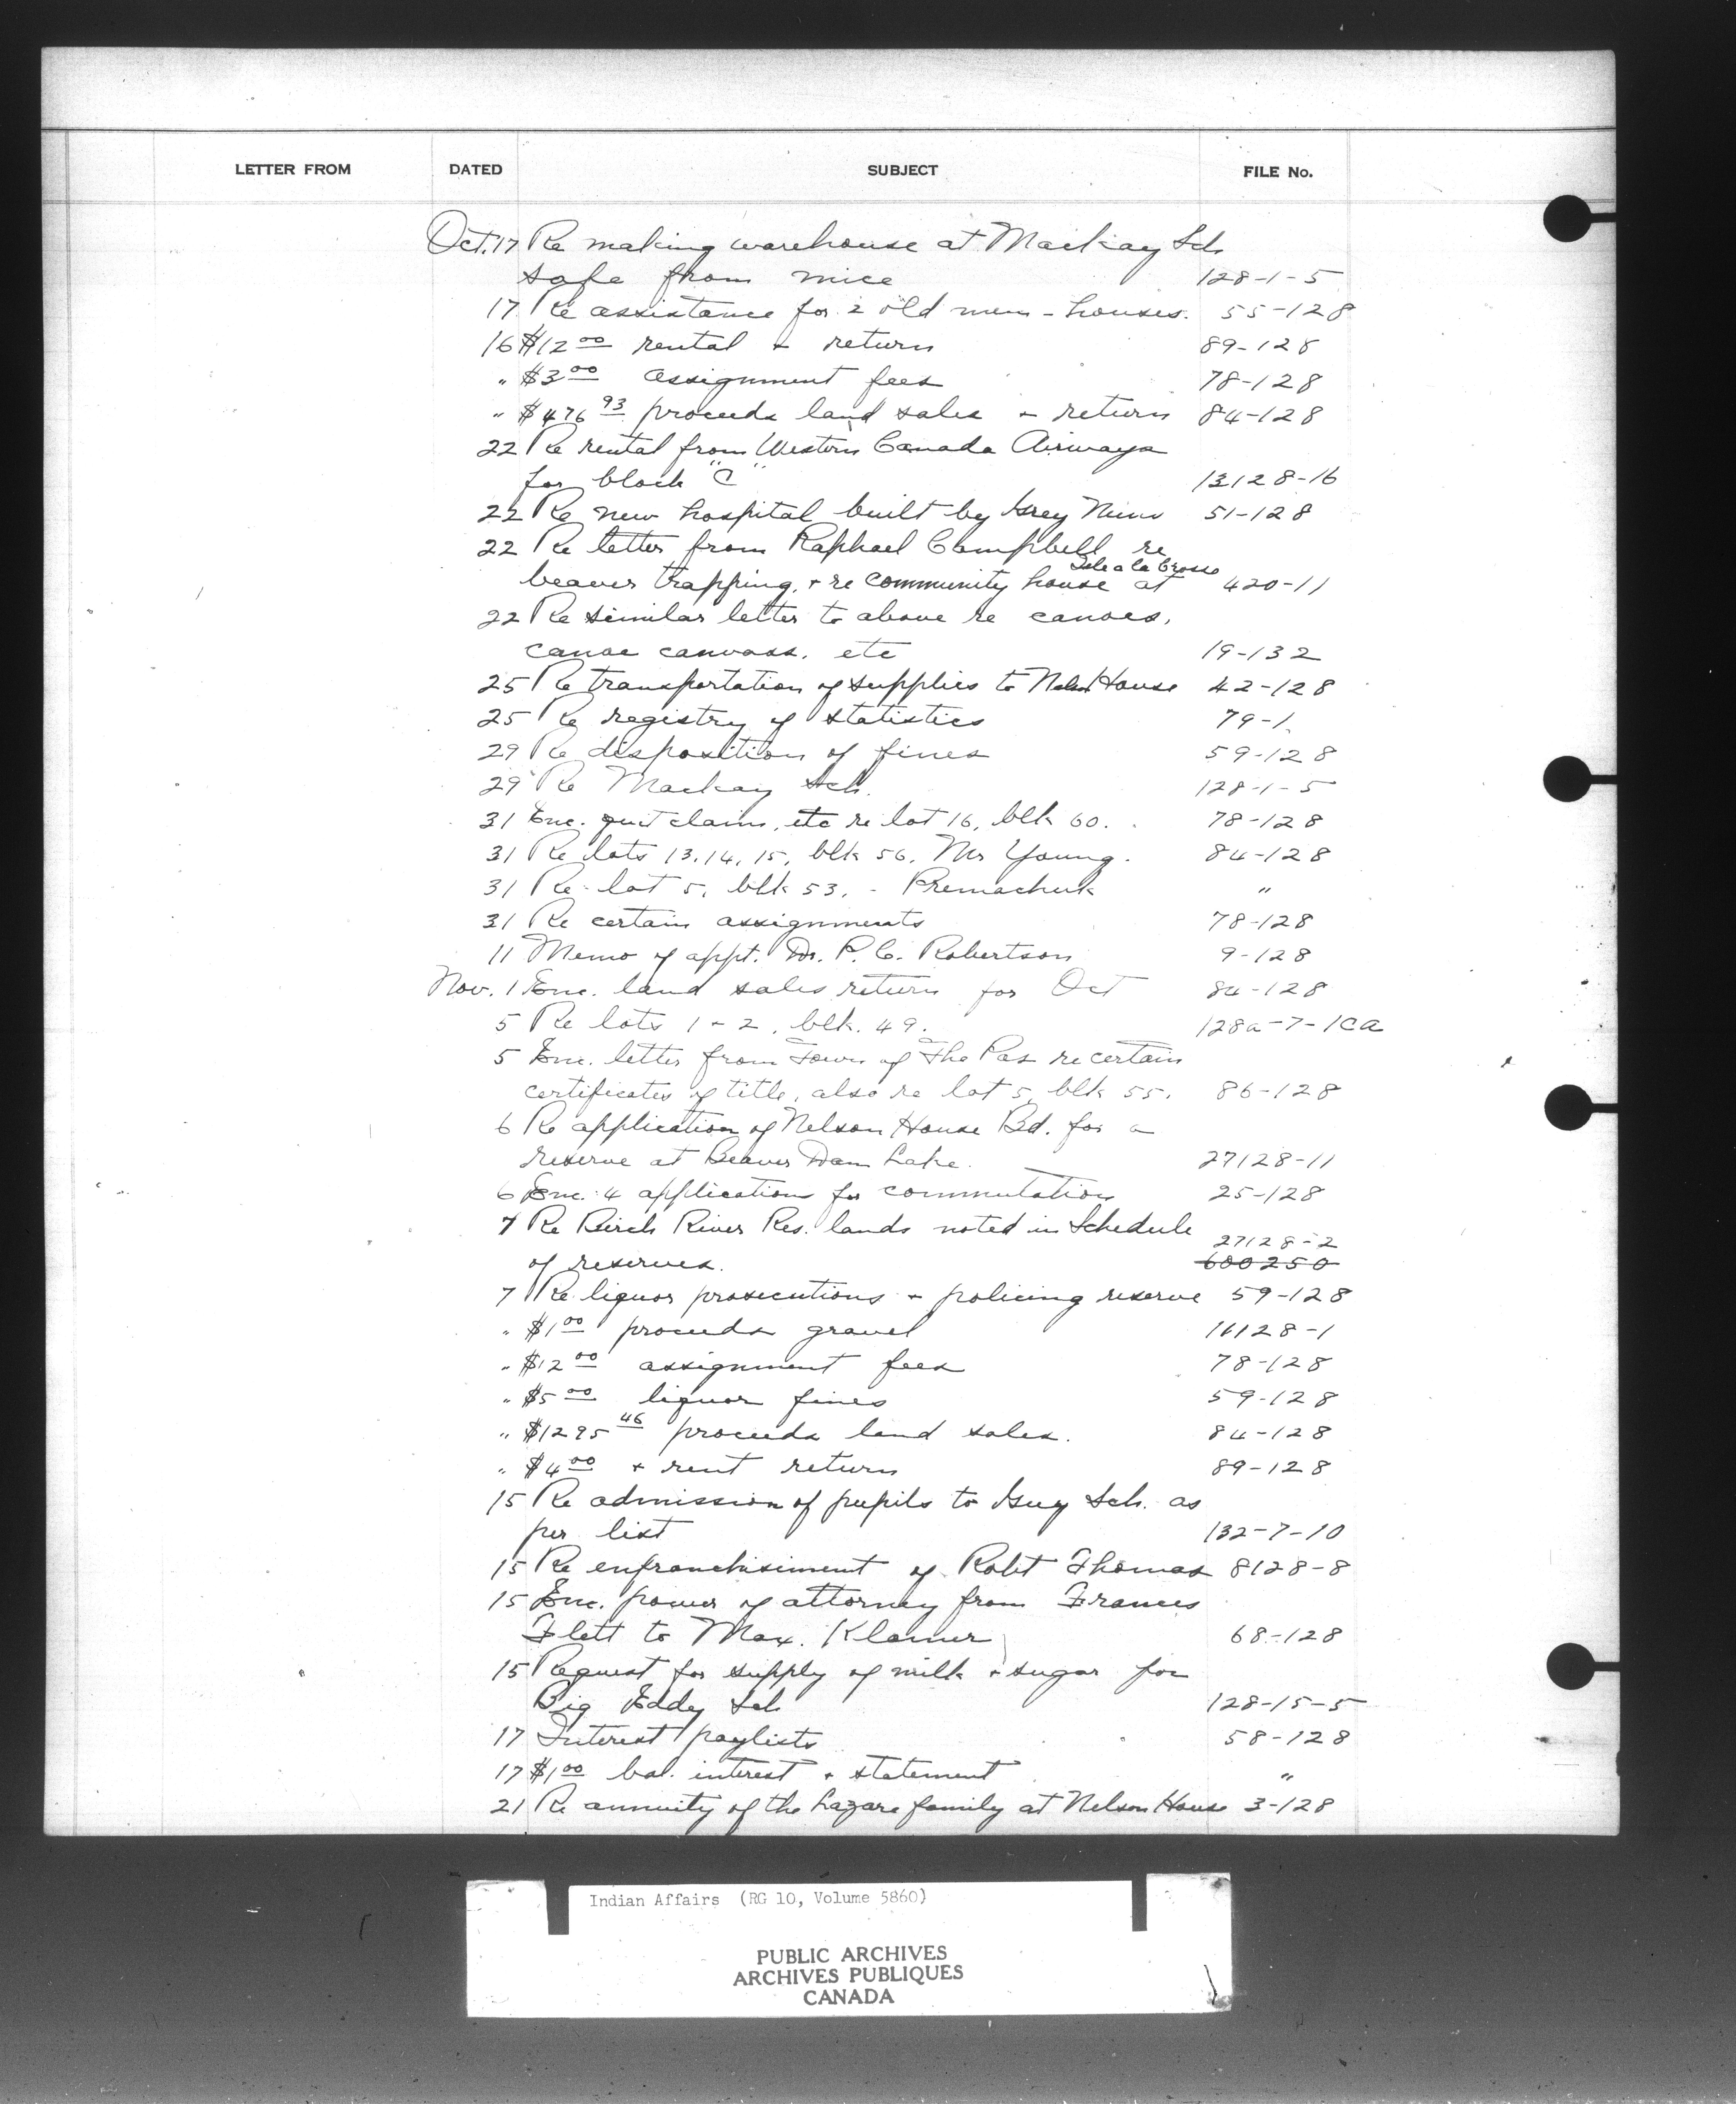 LETTER FROM DATED SUBJECT FILE No.
Oct. 17 Re making warehouse at Mackay Sch
safe from mice 128-1-5
17 Re assistance for 2 old men - houses. 55-128
16 $12 00 rental + return 89-128
" $3 00 assignment fees 78-128
" $476 93 proceeds land sales + return 84-128
22 Re rental from Western Canada Airways
for block "C" 13128-16
22 Re new hospital built by Grey Nuns 51-128
22 Re letter from Raphael Campbell re
Isle a la Crosse
beaver trapping, + re community house at 420-11
22 Re similar letter to above re canoes,
canoe canvass, etc 19-132
25 Re transportation of supplies to Nelson House 42-128
25 Re registry of statistics 79-1
29 Re disposition of fines 59-128
29 Re Mackay Sch. 128-1-5
31 Enc. quit claim, etc re lot 16, blk 60. 78-128
31 Re lots 13, 14, 15, blk 56, Mr Young. 84-128
31 Re lot 5, blk 53, - Premachuk "
31 Re certain assignments 78-128
11 Memo of appt. Dr. P. C. Robertson 9-128
Nov. 1 Enc. land sales return for Oct 84-128
5 Re lots 1 + 2, blk. 49. 128a-7-1ca
5 Enc. letter from Town of The Pas re certain
certificates of title, also re lot 5, blk 55. 86-128
6 Re application of Nelson House Bd. for a
reserve at Beaver Dam Lake. 27128-11
6 Enc. 4 applications for commutation 25-128
7 Re Birch River Res. lands noted in Schedule 27128-2
of reserves. 600250
7 Re liquor prosecutions + policing reserve 59-128
" $1 00 proceeds gravel 16128-1
" $12 00 assignment fees 78-128
" $5 00 liquor fines 59-128
" $1295 46 proceeds land sales. 84-128
" $4 00 + rent return 89-128
15 Re admission of pupils to Guy Sch. as
per list 132-7-10
15 Re enfranchisiment of Robt Thomas 8128-8
15 Enc. power of attorney from Frances
Flett to Max. Klamer 68-128
15 Request for supply of milk + sugar for
Big Eddy Sch 128-15-5
17 Interest paylists 58-128
17 $1 00 bal. interest + statement "
21 Re annuity of the Lazare family at Nelson House 3-128
Indian Affairs (RG 10, Volume 5860)
PUBLIC ARCHIVES
ARCHIVES PUBLIQUES
CANADA